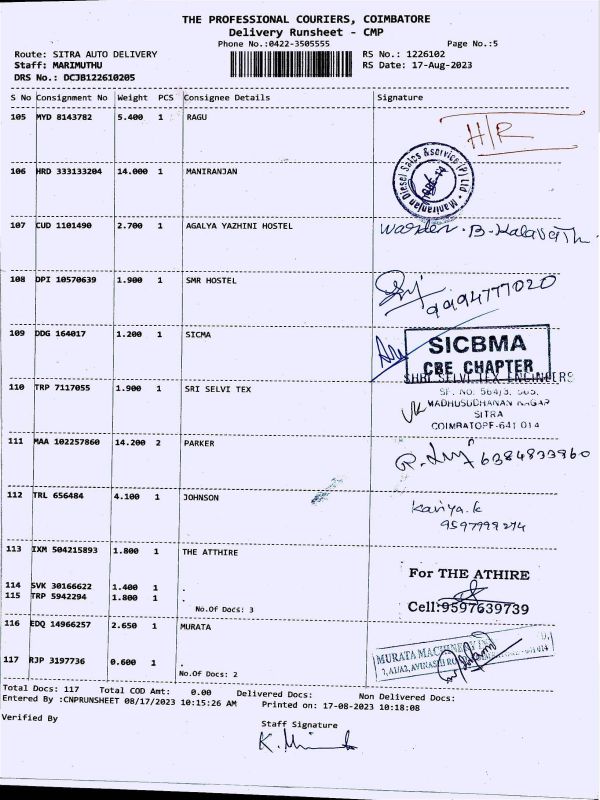 THE PROFESSIONAL COURIERS, COIMBATORE
Delivery Runsheet - CMP
Phone No.:0422-3505555
Page No.:5
Route: SITRA AUTO DELIVERY
RS No.: 1226102
Staff: MARIMUTHU
RS Date: 17-Aug-2023
DRS No.: DCJB122610205
S No Consignment No Weight PCS Consignee Details Signature
105 MYD 8143782 5.400 1 RAGU
H/R
106 HRD 333133204 14.000 1 MANIRANJAN
Maniranjan Diesel Sales & service (P) Ltd
107 CUD 1101490 2.700 1 AGALYA YAZHINI HOSTEL
Warden. B. Kalavath
108 DPI 10570639 1.900 1 SMR HOSTEL
9994777020
109 DDG 164017 1.200 1 SICMA
SICBMA
CBE CHAPTER
SHRI SELVI TEX ENGINEERS
110 TRP 7117055 1.900 1 SRI SELVI TEX
SF. NO. 564/3, 565,
MADHUSUDHANAN NAGAR
SITRA
COIMBATORE-641 014
111 MAA 102257860 14.200 2 PARKER
6384833960
112 TRL 656484 4.100 1 JOHNSON
Kaviya.k
9597999274
113 IXM 504215893 1.800 1 THE ATTHIRE
For THE ATHIRE
114 SVK 30166622 1.400 1 .
115 TRP 5942294 1.800 1 .
No.Of Docs: 3
Cell:9597639739
116 EDQ 14966257 2.650 1 MURATA
MURATA MACHINERY IN
AVINASHI RO
117 RJP 3197736 0.600 1 .
No.Of Docs: 2
Total Docs: 117 Total COD Amt: 0.00 Delivered Docs: Non Delivered Docs:
Entered By :CNPRUNSHEET 08/17/2023 10:15:26 AM Printed on: 17-08-2023 10:18:08
Verified By
Staff Signature